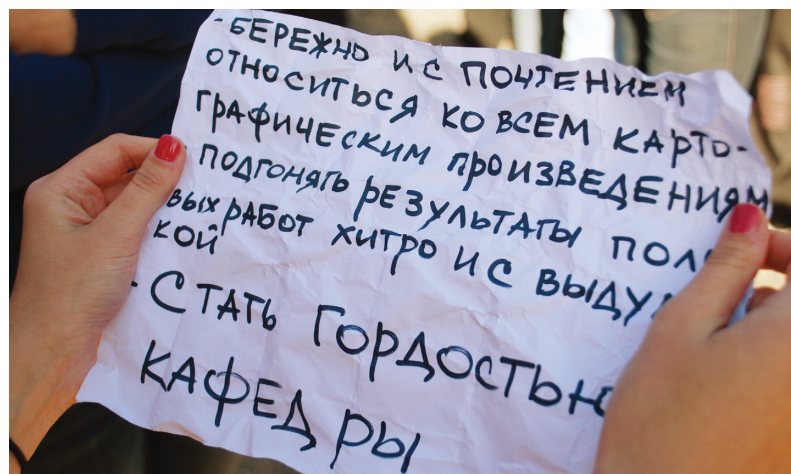 - БЕРЕЖНО И С ПОЧТЕНИЕМ
ОТНОСИТЬСЯ КО ВСЕМ КАРТО-
ГРАФИЧЕСКИМ ПРОИЗВЕДЕНИЯМ
- ПОДГОНЯТЬ РЕЗУЛЬТАТЫ
ВЫХ РАБОТ ХИТРО И С
КОЙ
- СТАТЬ ГОРДОСТЬЮ
КАФЕДРЫ